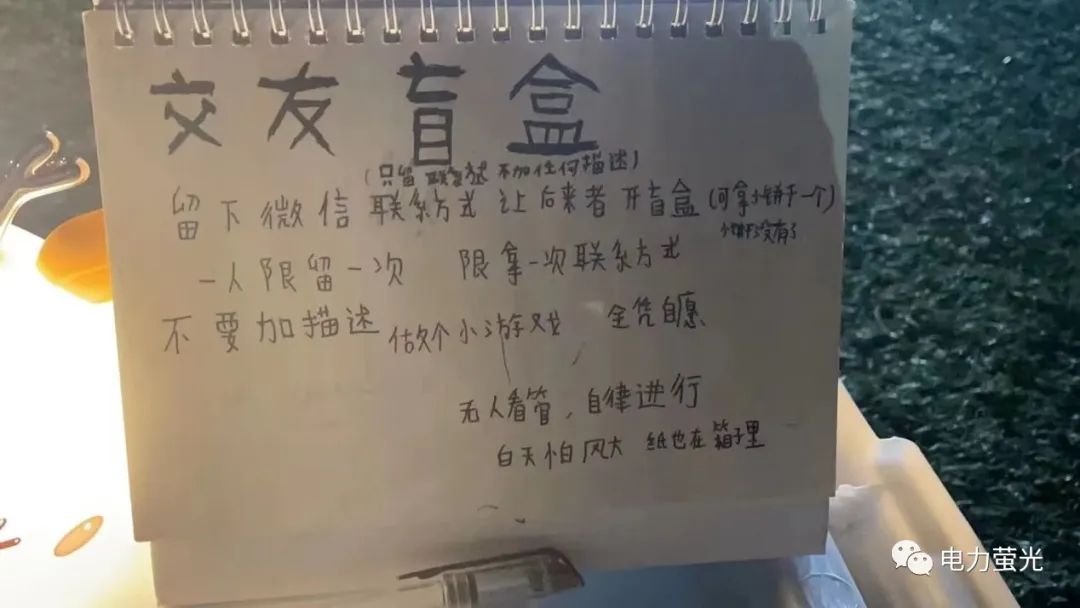 交友盲盒
(只留联系方式 不加任何描述)
留下微信联系方式 让后来者开盲盒(可拿小饼干一个)
小饼干没有了
一人限留一次 限拿一次联系方式
不要加描述 做个小游戏 全凭自愿
无人看管,自律进行
白天怕风大 纸也在箱子里
电力萤光